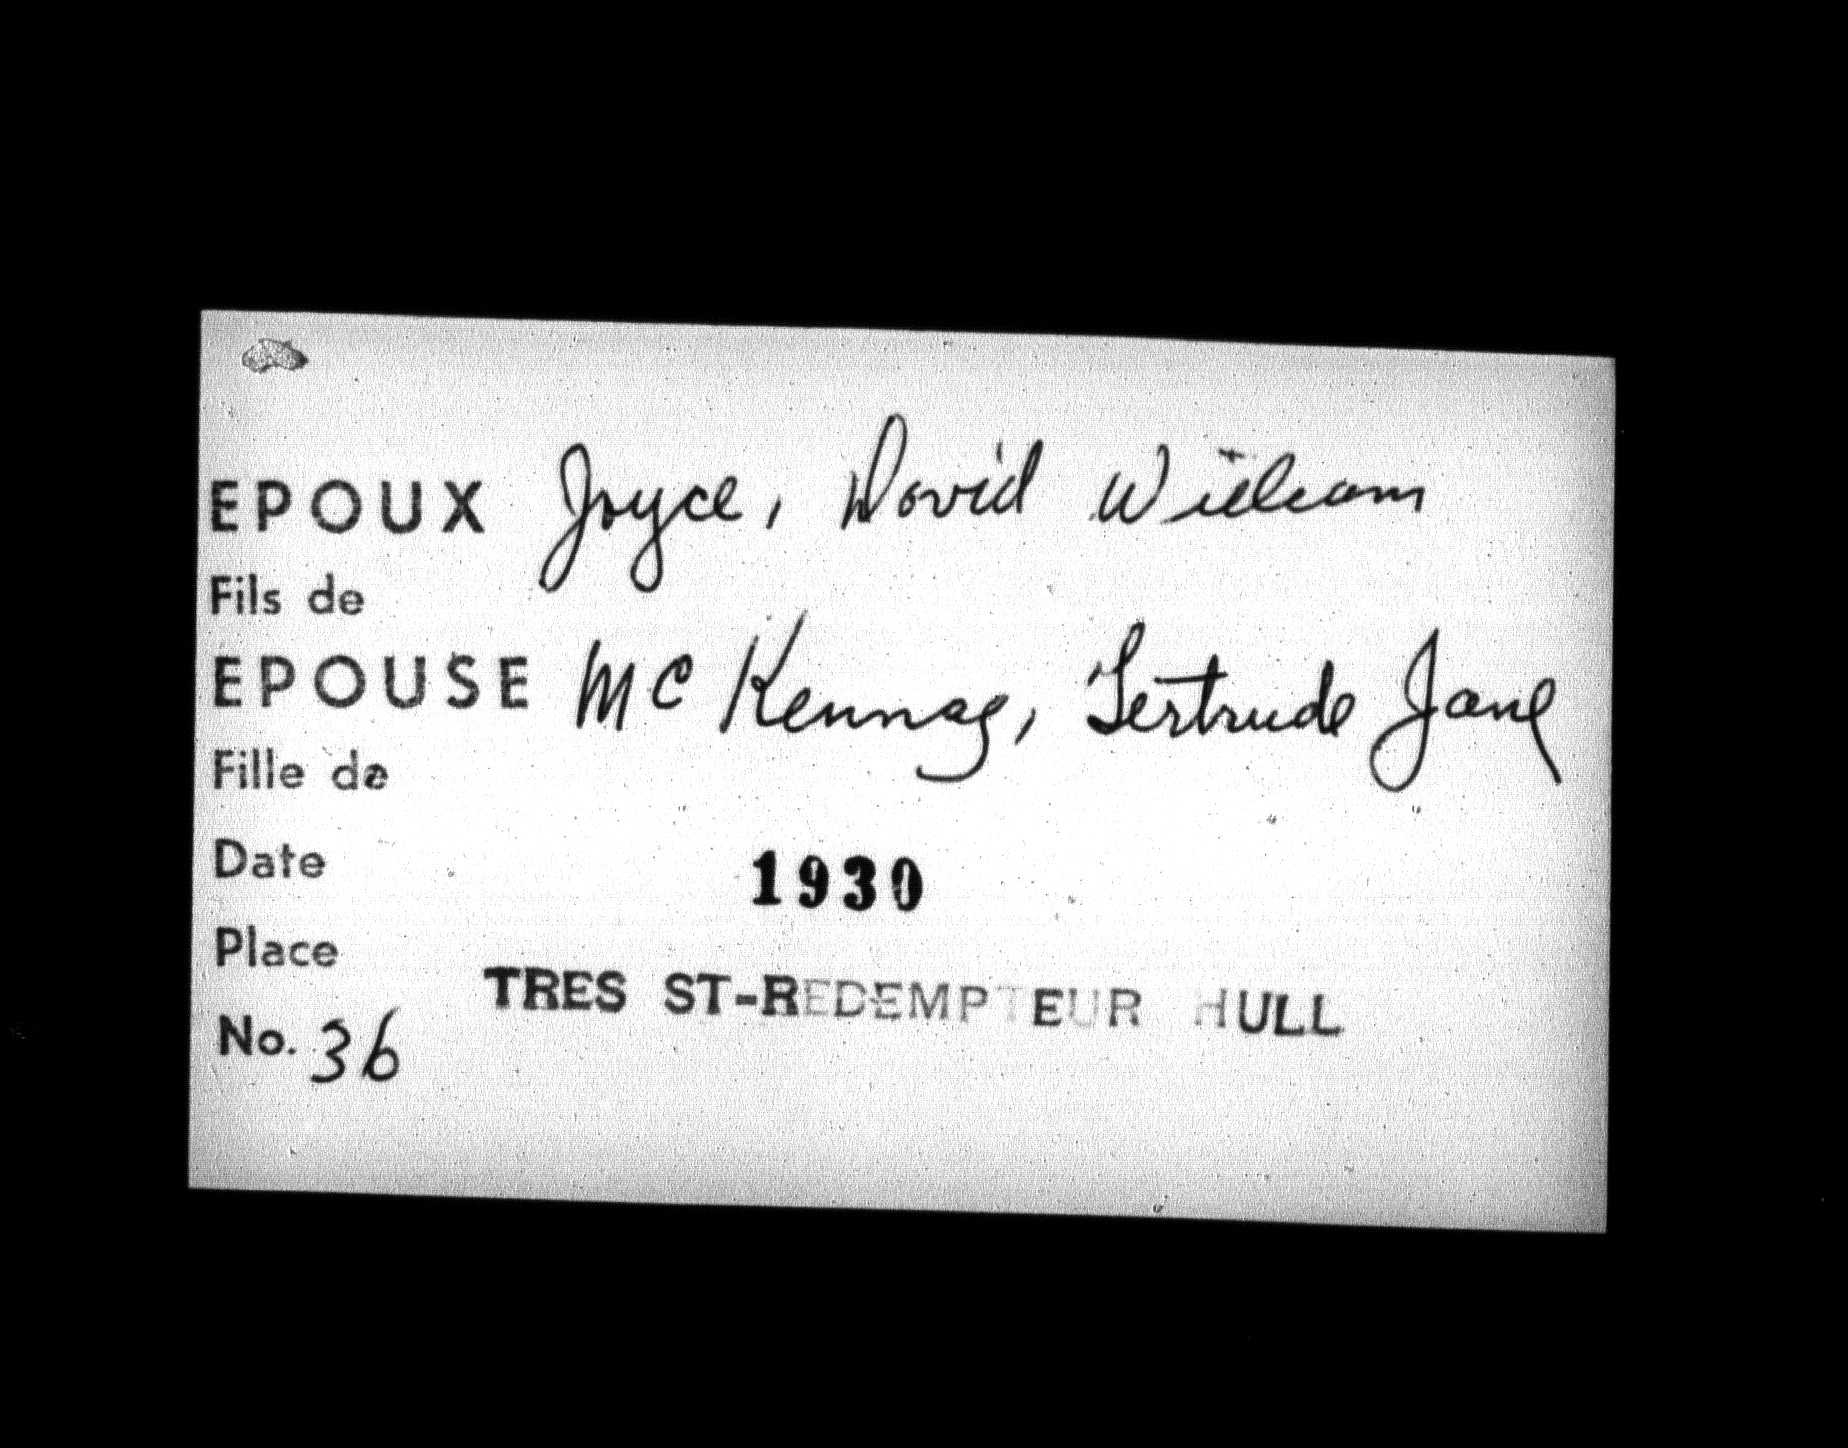 EPOUX Joyce, David William
Fils de
EPOUSE Mc Kennag, Gertrude Jane
Fille de
Date 1930
Place TRES ST-REDEMPTEUR HULL
No. 36